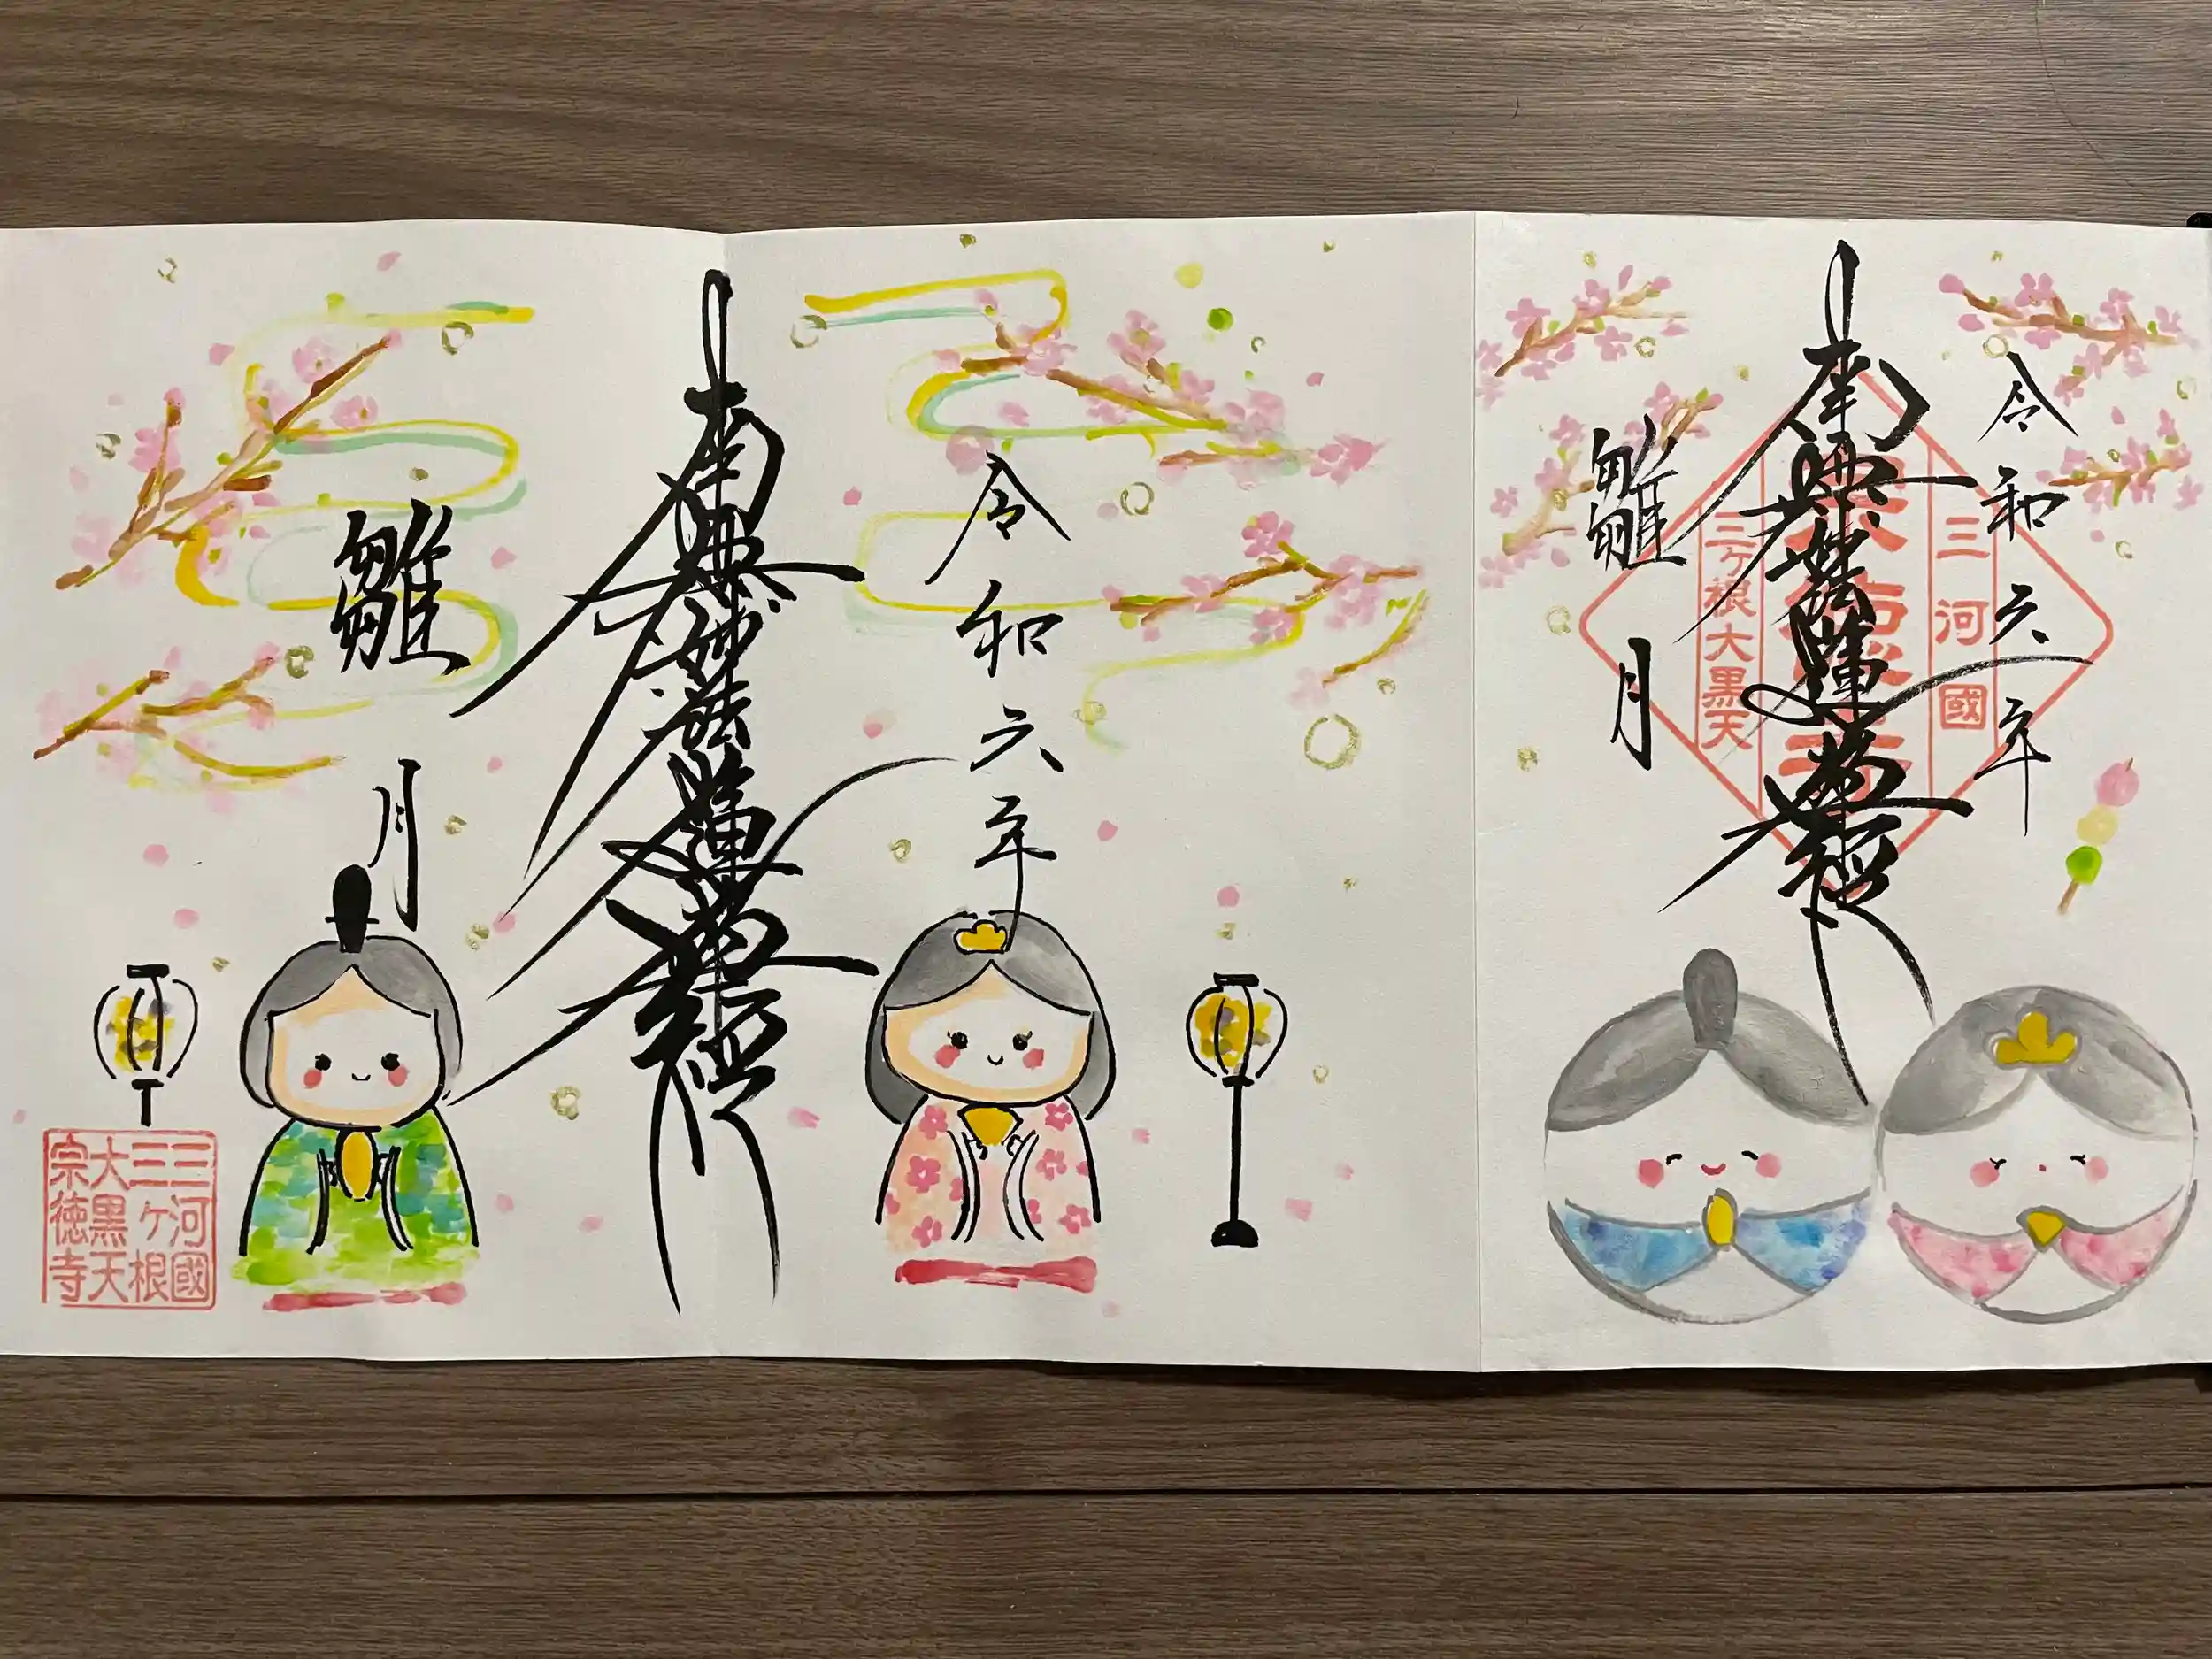 令和六年
南無妙法蓮華經
雛月
三河國
三ヶ根大黒天
令和六年
南無妙法蓮華經
雛月
三河國
三ヶ根
大黒天
宗徳寺